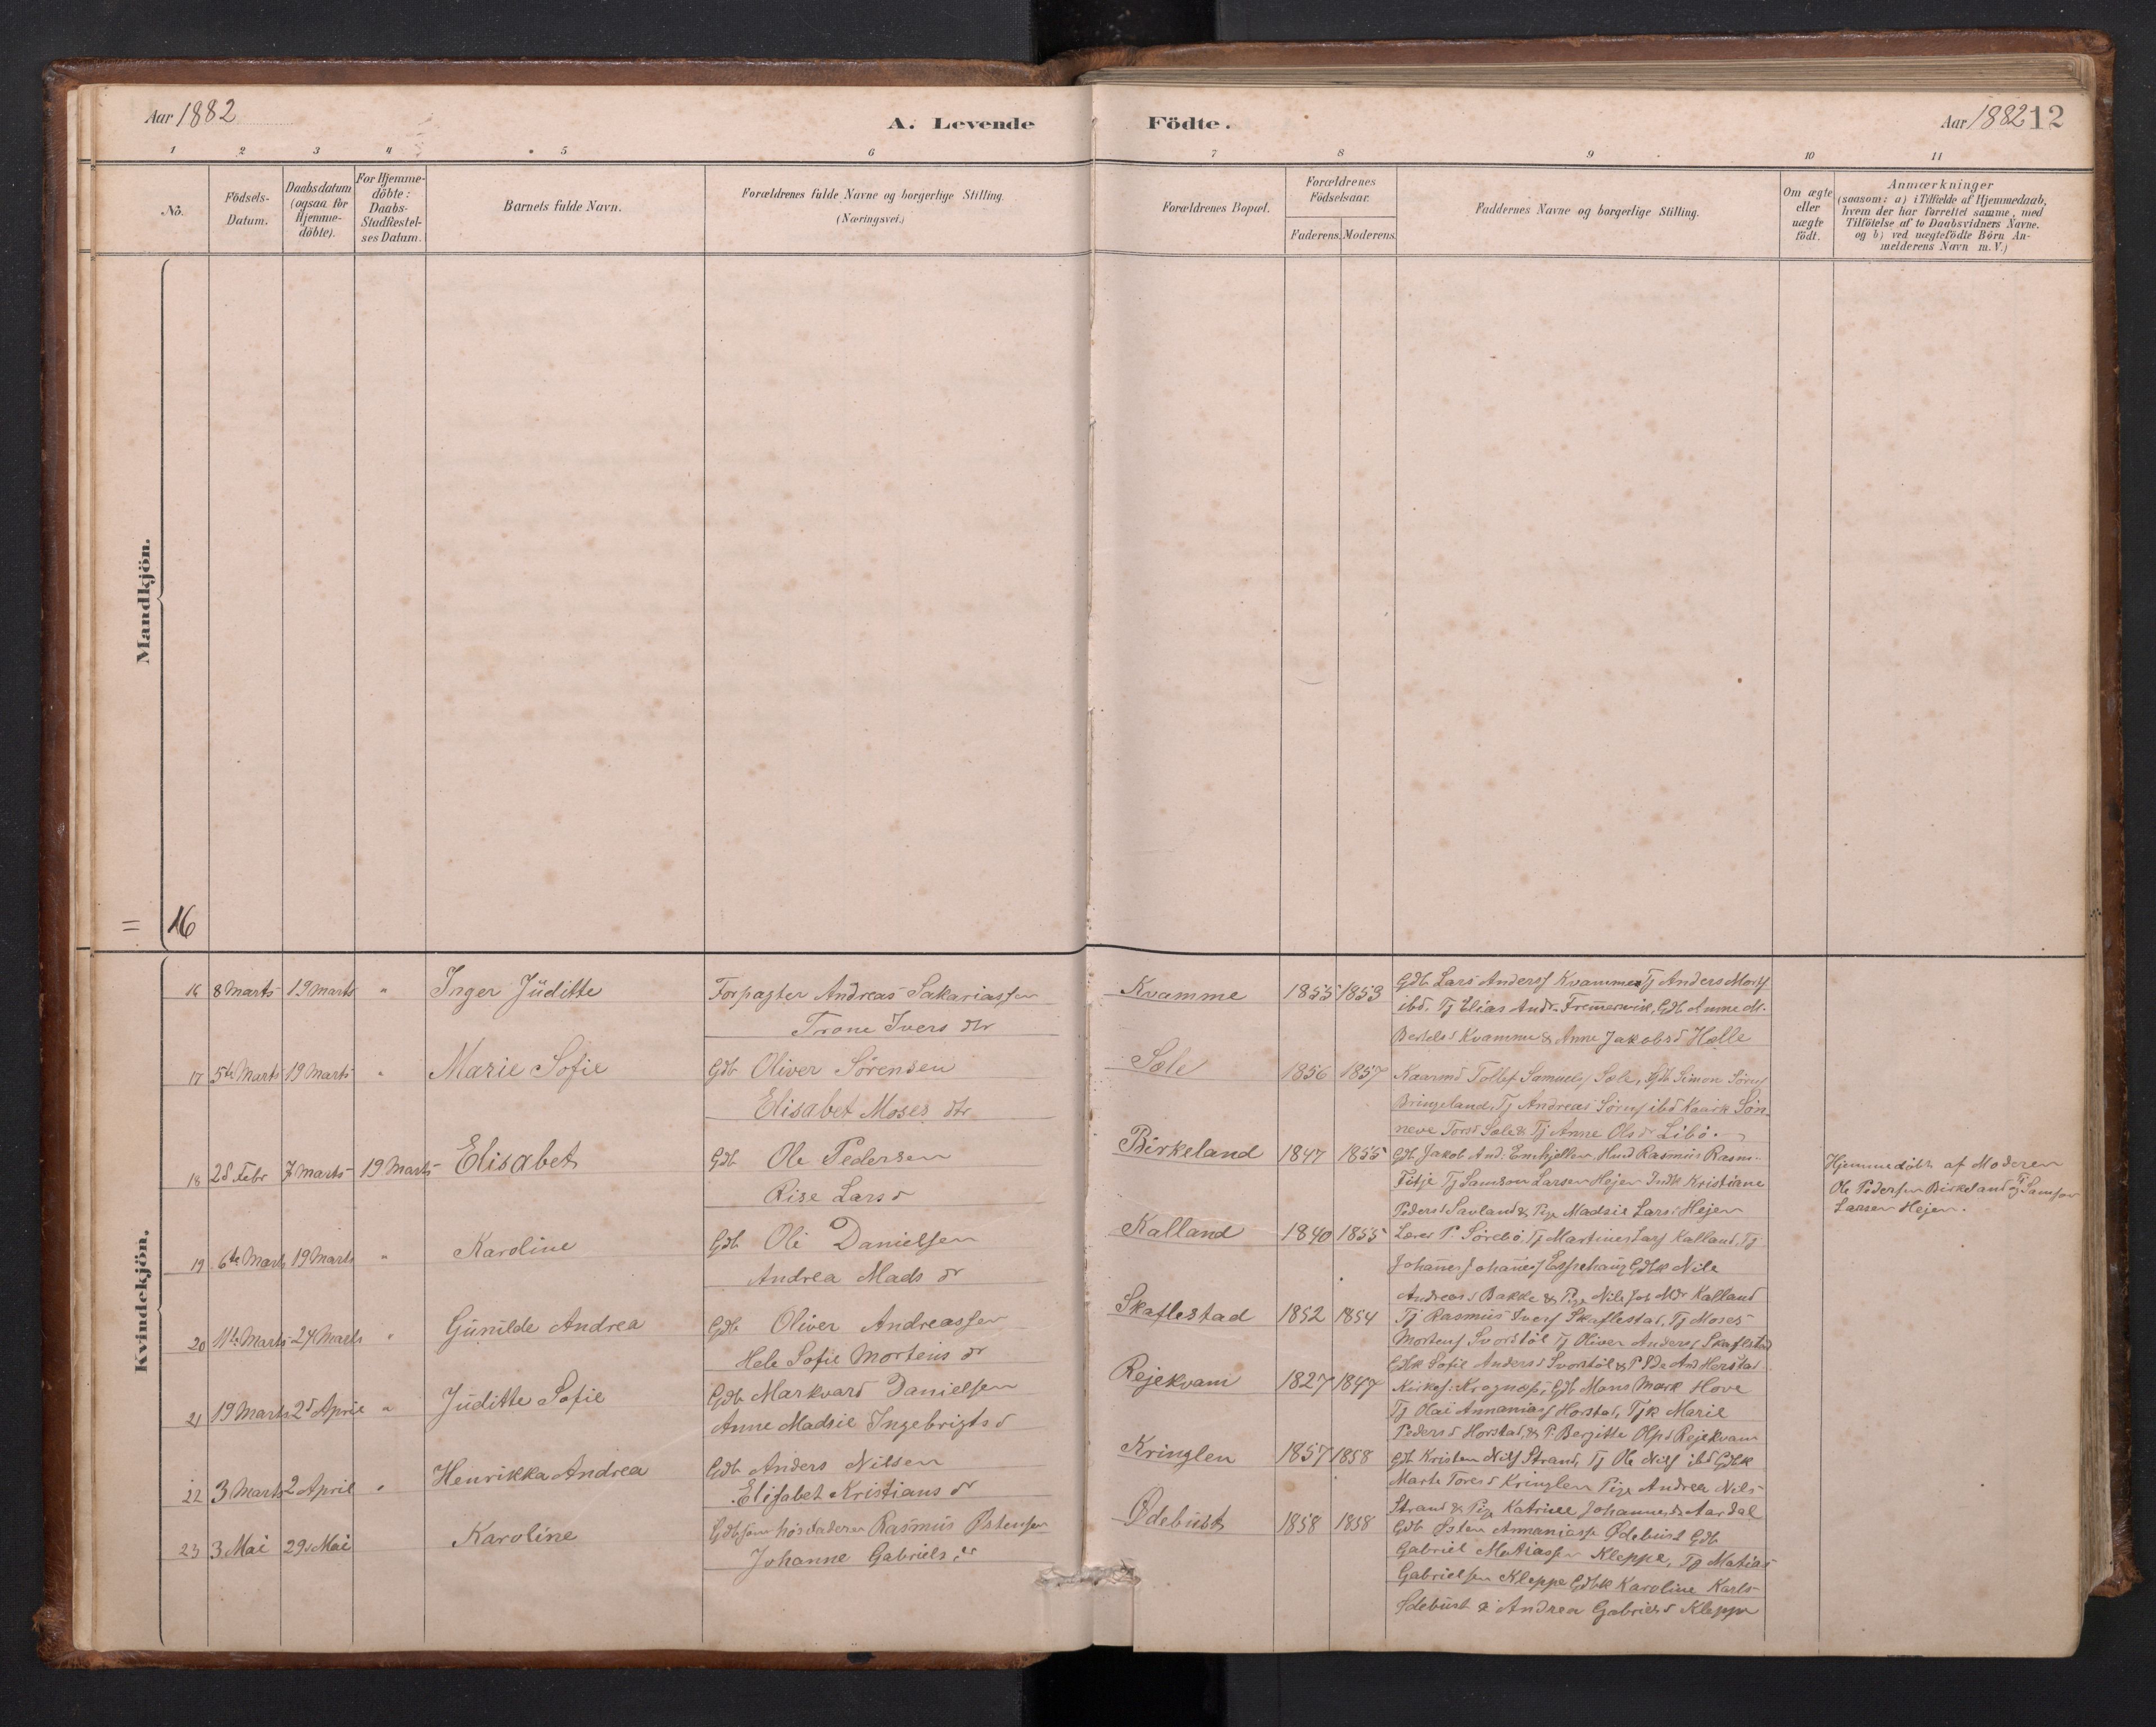 Aar 1882
A. Levende Födte.
Aar 1882 12
1 2 3 4 5 6 7 8 9 10 11
No.
Födsels-Datum.
Daabsdatum (ogsaa for Hjemme-döbte).
For Hjemme-döbte: Daabs-Stadfæstel-ses Datum.
Barnets fulde Navn.
Forældrenes fulde Navne og borgerlige Stilling.
(Næringsvei.)
Forældrenes Bopæl.
Forældrenes Födselsaar.
Faderens. Moderens.
Faddernes Navne og borgerlige Stilling.
Om ægte eller uægte födt.
Anmærkninger
(saasom: a) i Tilfælde af Hjemmedaab,
hvem der har forrettet samme, med
Tilföielse af to Daabsvidners Navne.
og b) ved uægtefödte Börn An-
melderens Navn m. V.)
Mandkjön.
= 16
Kvindekjön.
16 8 Marts 19 Marts " Inger Juditte
Forpagter Andreas Sakariassen
Trone Ivers dtr
Kvamme 1855 1853
Gdb Lars Anders Kvamme Tj Anders
ibd. Tj Elias Andr. Gdb Anne M.
Kvamme & Anne Jakobsd Hælle
17 5te Marts 19 Marts " Marie Sofie
Gdb Oliver Sörensen
Elisabet Moses dtr
Sæle 1856 1857
Samuels Sæle, Gdb Simon
Bringeland, Tj Andreas ibd Sön
neve Torsd Sæle & Tj Anne Olsdr Libö.
18 28 Febr 7 Marts 19 Marts Elisabet
Gdb Ole Pedersen
Larsd
Birkeland 1847 1855
Gdb Jakob And. Husmd Rasmus Rasm.
Fitje Tj Samson Larsen Hejen Kristiane
Pedersd & Pige Madsie Larsd Hejen
Hjemmedöbt af Moderen
Ole Pedersen Birkeland og Samson
Larsen Hejen.
19 6te Marts 19 Marts " Karoline
Gdb Ole Danielsen
Andrea Mads dr
Kalland 1840 1855
P. Sörebö, Tj Martinus Kalland, Tj
Andreasd Bakke & Pige Kalland
20 11te Marts 24 Marts " Gunilde Andrea
Gdb Oliver Andreassen
Sofie Mortens dr
Skaflestad 1852 1854
Tj Rasmus Ivers Skaflestad, Tj Moses
Tj Oliver Anders Skaflestad
Gdbk Sofie Andersd
21 19 Marts 2d April " Juditte Sofie
Gdb Markvard Danielsen
Anne Madsie Ingebrigtsd
Rejekvam 1827 1847
Gdb Mons Hove
Tj Olai Annanias Horstad, Tjk Marie
Pedersd Horstad & P. Bergitte Olsd Rejekvam
22 3 Marts 2 April " Henrikka Andrea
Gdb Anders Nilsen
Elisabet Kristians dr
Kringlen 1857 1858
Gdb Kristen Nils Strand, Tj Ole Nils ibd Gdbk
Marte Toresd Kringlen Pige Andrea Nils
Strand & Pige Katrine Johannesd Aardal
23 3 Mai 29 Mai Karoline
Rasmus Östensen
Johanne Gabrielsdr
Ödebust 1858 1858
Gdb Östen Annaniass Ödebust Gdb
Gabriel Matiassen Kleppe, Tj Matias
Gabrielsen Kleppe Gdbk Karoline Karls
Ödebust & Andrea Gabrielsd Kleppe